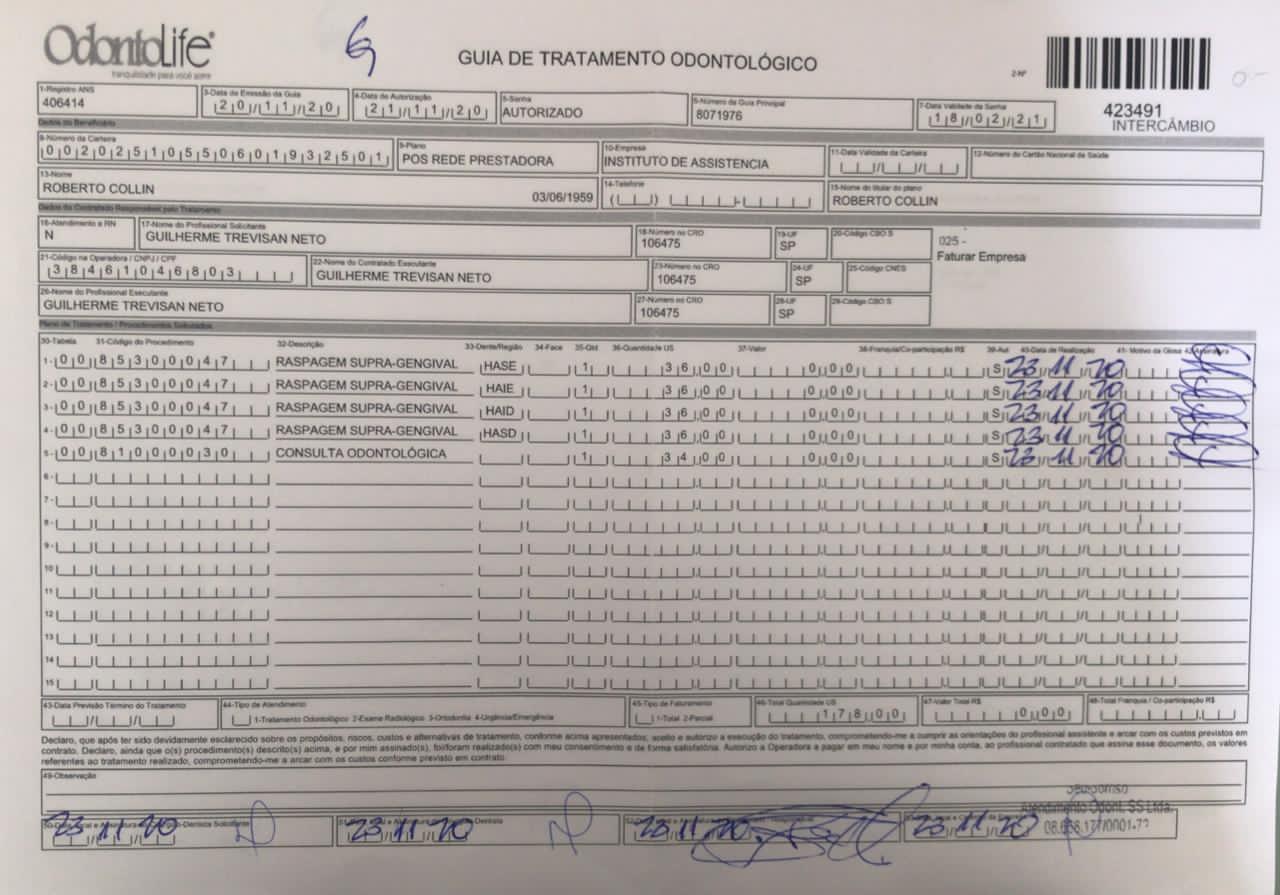 OdontoLife
tranquilidade para você sorrir
GUIA DE TRATAMENTO ODONTOLÓGICO
2-Nº
423491
INTERCÂMBIO
1-Registro ANS 3-Data de Emissão da Guia 4-Data de Autorização 5-Senha 6-Número da Guia Principal 7-Data Validade da Senha
406414 20/11/20 21/11/20 AUTORIZADO 8071976 18/02/21
Dados do Beneficiário
8-Número da Carteira 9-Plano 10-Empresa 11-Data Validade da Carteira 12-Número do Cartão Nacional de Saúde
00202510550601932501 POS REDE PRESTADORA INSTITUTO DE ASSISTENCIA
13-Nome 14-Telefone 15-Nome do titular do plano
ROBERTO COLLIN 03/06/1959 ROBERTO COLLIN
Dados do Contratado Responsável pelo Tratamento
16-Atendimento a RN 17-Nome do Profissional Solicitante 18-Número no CRO 19-UF 20-Código CBO S
N GUILHERME TREVISAN NETO 106475 SP
025 -
Faturar Empresa
21-Código na Operadora / CNPJ / CPF 22-Nome do Contratado Executante 23-Número no CRO 24-UF 25-Código CNES
38461046803 GUILHERME TREVISAN NETO 106475 SP
26-Nome do Profissional Executante 27-Número no CRO 28-UF 29-Código CBO S
GUILHERME TREVISAN NETO 106475 SP
Plano de Tratamento / Procedimentos Solicitados
30-Tabela 31-Código do Procedimento 32-Descrição 33-Dente/Região 34-Face 35-Qtd 36-Quantidade US 37-Valor 38-Franquia/Co-participação R$ 39-Aut 40-Data de Realização 41- Motivo da Glosa 42-Assinatura
1- 00 85300047 RASPAGEM SUPRA-GENGIVAL HASE 1 36,00 0,00 S 23/11/20
2- 00 85300047 RASPAGEM SUPRA-GENGIVAL HAIE 1 36,00 0,00 S 23/11/20
3- 00 85300047 RASPAGEM SUPRA-GENGIVAL HAID 1 36,00 0,00 S 23/11/20
4- 00 85300047 RASPAGEM SUPRA-GENGIVAL HASD 1 36,00 0,00 S 23/11/20
5- 00 81000030 CONSULTA ODONTOLÓGICA 1 34,00 0,00 S 23/11/20
6-
7-
8-
9-
10
11
12
13
14
15
43-Data Previsão Término do Tratamento 44-Tipo de Atendimento 45-Tipo de Faturamento 46-Total Quantidade US 47-Valor Total R$ 48-Total Franquia / Co-participação R$
1-Tratamento Odontológico 2-Exame Radiológico 3-Ortodontia 4-Urgência/Emergência 1-Total 2-Parcial 178,00 0,00
Declaro, que após ter sido devidamente esclarecido sobre os propósitos, riscos, custos e alternativas de tratamento, conforme acima apresentados, aceito e autorizo a execução do tratamento, comprometendo-me a cumprir as orientações do profissional assistente e arcar com os custos previstos em
contrato. Declaro, ainda que o(s) procedimento(s) descrito(s) acima, e por mim assinado(s), foi/foram realizado(s) com meu consentimento e de forma satisfatória. Autorizo a Operadora a pagar em meu nome e por minha conta, ao profissional contratado que assina esse documento, os valores
referentes ao tratamento realizado, comprometendo-me a arcar com os custos conforme previsto em contrato.
49-Observação
Atendimento Odont. SS Ltda.
23 11 20 23 11 20 23 11 20 23 11 20